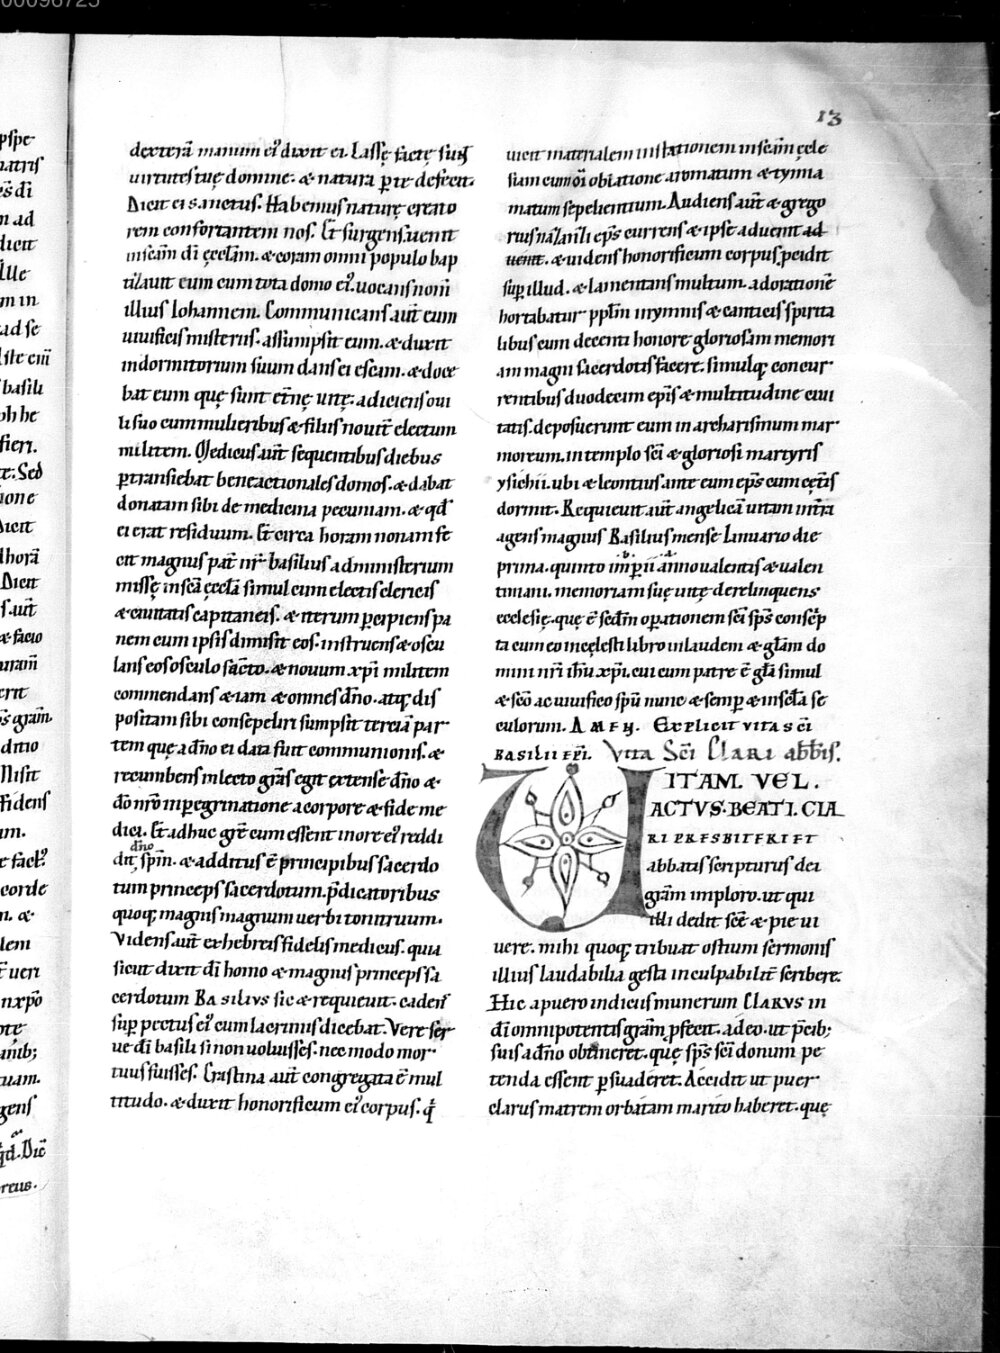 00096725
13
dexterā manum ei᾽ dixit ei. Lassę factę sunt
uirtutes tuę domine. & natura p te defecit.
Dicit ei sanctus. Habemus naturę creato
rem confortantem nos. Et surgens. uenit
in scām dī ęcclām. & coram omni populo bap
tizauit eum cum tota domo ei᾽. uocans nom̄
illius Iohannem. Communicans aut̄ eum
uiuificis misteriis. assumpsit eum. & duxit
in dormitorium suum dans ei escam. & doce
bat eum quę sunt et̄nę uitę. adiciens oui
li suo cum mulieribus & filiis nouit̄ electum
militem. Medicus aut̄ sequentibus diebus
ptransiebat beneactionales domos. & dabat
donatam sibi de medicina pecuniam. & qđ
ei erat residuum. Et circa horam nonam fe
cit magnus pat̄ nr̄ basilius administerium
missę in scā ęcclā simul cum electis clericis
& ciuitatis capitaneis. & iterum pcipiens pa
nem cum ipsis dimisit eos. instruens & oscu
lans eos osculo sācto. & nouum xp̄i militem
commendans & iam & omnes dn̄o. atq; dis
positam sibi consepeliri sumpsit terciā par
tem quę a dn̄o ei data fuit communionis. &
recumbens in lecto grās egit extense dn̄o &
dō nr̄o in peregrinatione a corpore & fide me
dici. Et adhuc grē cum essent in ore ei᾽ reddi
dn̄o
dit spm̄. & additus ē principibus sacerdo
tum princeps sacerdotum. p̄dicatoribus
quoq; magnis magnum uerbi tonitruum.
Videns aut̄ ex hebreis fidelis medicus. quia
sicut dixit dī homo & magnus princeps sa
cerdotum BASILIVS sic & requieuit. cadens
sup pectus ei᾽ cum lacrimis dicebat. Vere ser
ue dī basili si non uoluisses. nec modo mor
tuus fuisses. Crastina aut̄ congregata ē mul
titudo. & duxit honorificum ei᾽ corpus. q̄
uicit materialem inflationem in scām ęcle
siam cum oī oblatione aromatum & tymia
matum sepelientium. Audiens aut̄ & grego
rius nazanzeni ep̄s currens & ipse aduenit ad
uenit. & uidens honorificum corpus. p̄cidit
sup illud. & lamentans multum. adoratione
hortabatur ppl̄m in ymnis & canticis spirita
libus cum decenti honore gloriosam memori
am magni sacerdotis facere. simulq; concur
rentibus duodecim ep̄is & multitudine ciui
tatis. deposuerunt eum in archarismum mar
moreum. in templo scī & gloriosi martyris
ysichii. ubi & leontius ante eum ep̄s cum cęt̄is
dormit. Requieuit aut̄ angelicā uitam intrā
agens magnus Basilius mense Ianuario die
prima. quinto imp̄ii anno ualentis & ualen
tiniani. memoriam suę uitę derelinquens
ecclesię. quę ē sedm̄ opationem scī sp̄s consc̄p
ta cum eo in cęlesti libro in laudem & glām do
mini nr̄i ih̄u xp̄i. cui cum patre ē glā simul
& scō ac uiuifico spū nunc & semp & in sclā se
culorum. AMEN. Explicit vita scī
BASILII EPĪ. Vita Scī Clari abb̄is.
VITAM. VEL.
ACTVS. BEATI. CLA
RI PRESBITERI ET
abbatis scripturus dei
grām imploro. ut qui
illi dedit sc̄e & pie ui
uere. mihi quoq; tribuat ostium sermonis
illius laudabilia gesta inculpabilit̄ scribere.
Hic a puero indicius munerum CLARVS in
dī omnipotentis grām. pfecit. adeo. ut p̄cib;
suis a dn̄o obtineret. quę sp̄s scī donum pe
tenda essent psuaderet. Accidit ut puer
clarus matrem orbatam marito haberet. quę